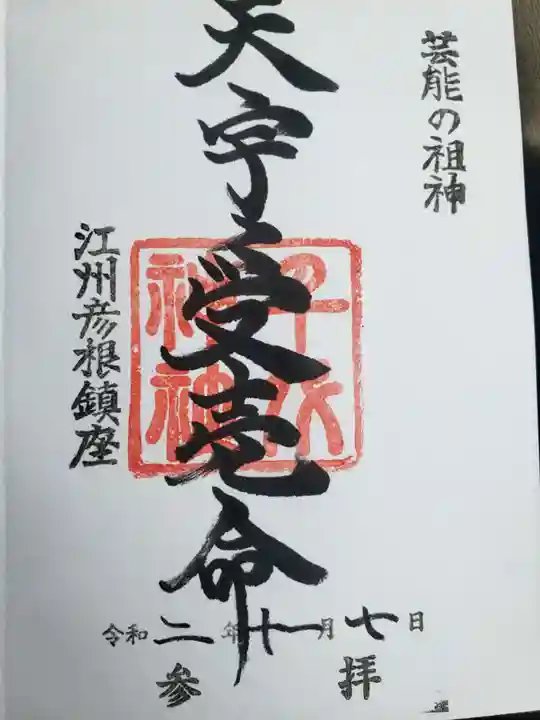 芸能の祖神
天宇受売命
千代神社
江州彦根鎮座
令和二年十一月七日
参拝